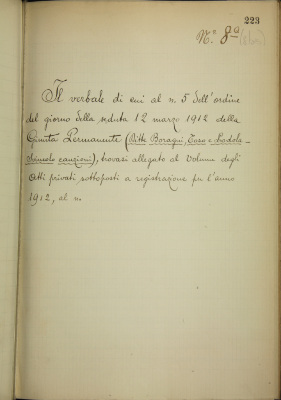 223
N.° 8°
Il verbale di cui al n. 5 dell'ordine
del giorno della seduta 12 marzo 1912 della
Giunta Permanente (Ditte
cauzioni), trovasi allegato al volume degli
atti privati sottoposti a registrazione per l'anno
1912, al n.